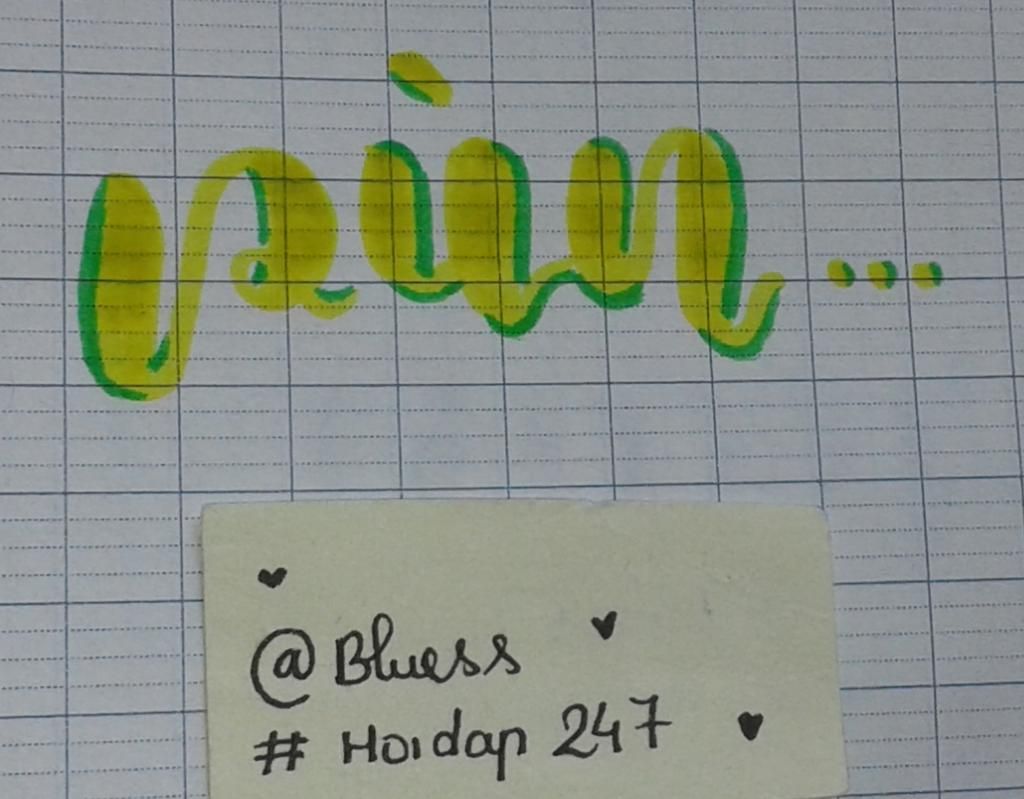 rin...
@Bluess
# Hoidap 247